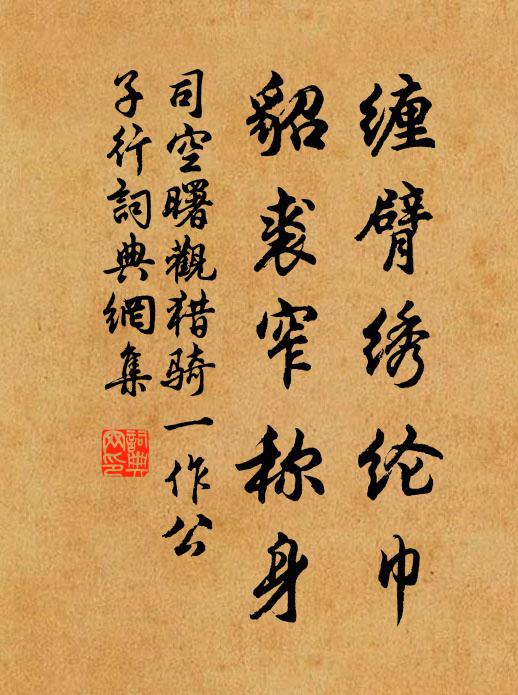 缠臂绣纶巾
貂裘窄称身
司空曙觀猎骑一作公
子行詞典網集
詞典网印